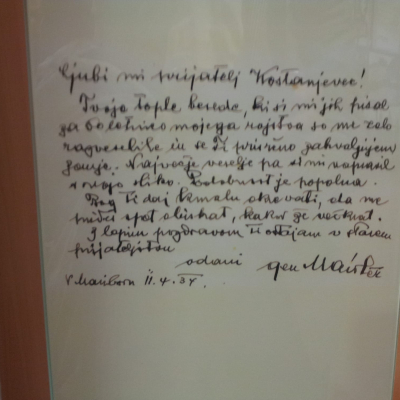 Ljubi mi prijatelj Kostanjevec!
Tvoje tople besede, ki si mi jih pisal
za 60 letnico mojega rojstva so me zelo
razveselile in se Ti prisrčno zahvaljujem
zanje. Največje veselje pa si mi napravil
s svojo sliko. Podobnost je popolna.
Bog Ti daj kmalu okrevati, da me
prideš spet obiskat, kakor že večkrat.
Z lepim pozdravom Ti ostajam v starem
prijateljstvu
odani
V Mariboru 4. 34.